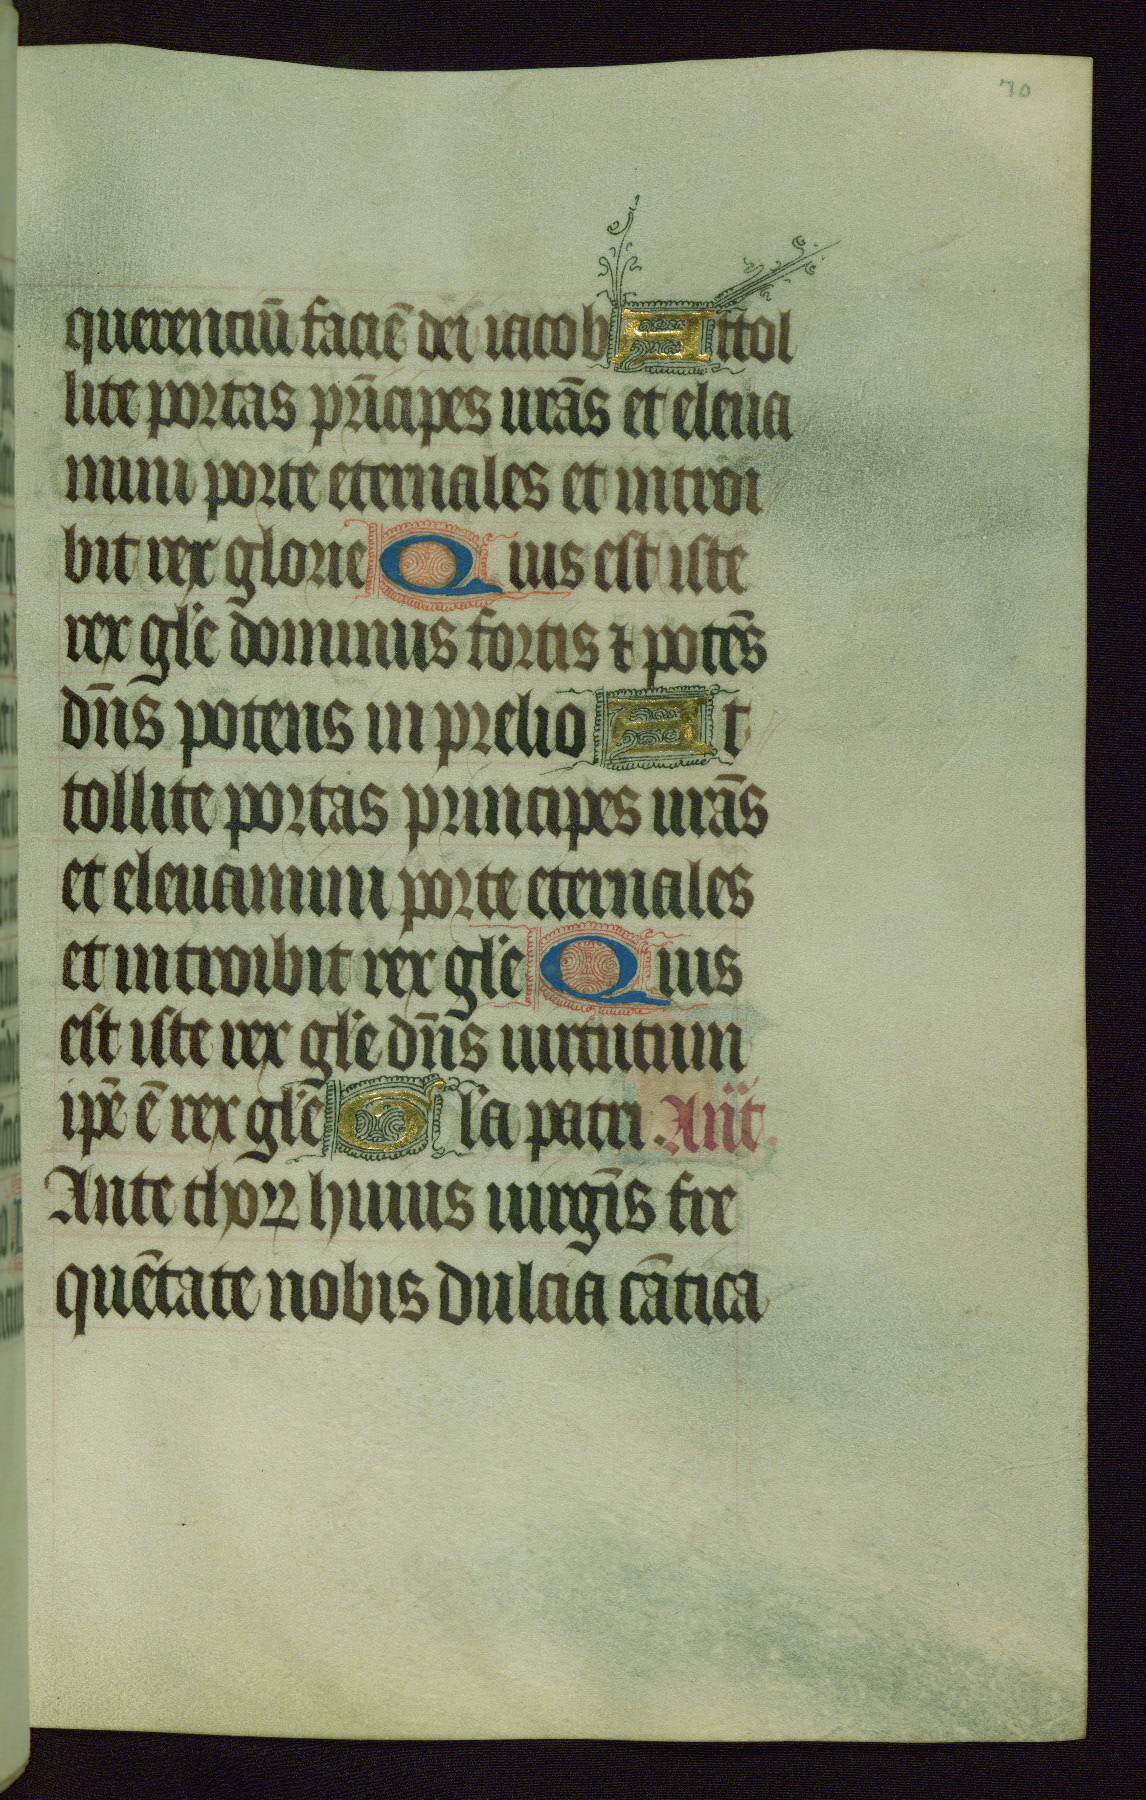 70
querenciū faciē dei iacob Attol
lite portas prīcipes urās et eleua
mini porte eternales et introi
bit rex glorie Quis est iste
rex gl'e dominus fortis ⁊ potēs
dn̄s potens in prelio At
tollite portas principes urās
et eleuamini porte eternales
et introibit rex gl'e Quis
est iste rex gl'e dn̄s uirtutum
ip̄e ē rex gl'e Gl'a patri. An̄t.
Ante thorꝝ huius uirgīs fre
quētate nobis dulcia cātica